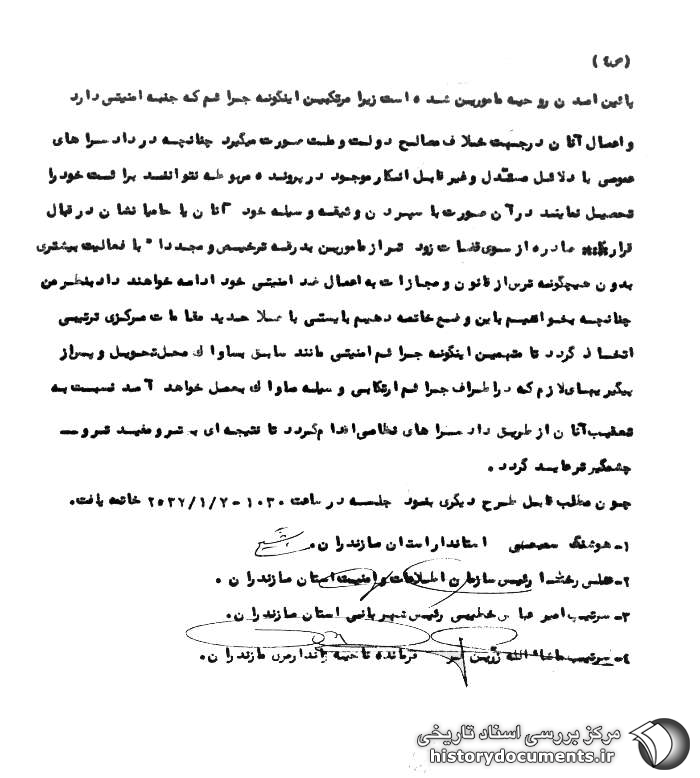 (ص٤)
پائین آمدن روحیه مامورین شده است زیرا مرتکبین اینگونه جرائم که جنبه امنیتی دارد
و اعمال آنان درجهت خلاف مصالح دولت و ملت صورت میگیرد چنانچه در دادسراهای
عمومی با دلائل مستدل و غیرقابل انکار موجود در پرونده مربوطه نتوانند برائت خود را
تحصیل نمایند در آن صورت با سپردن وثیقه وسیله خود آنان یا حامیانشان در قبال
قرار صادره از سوی قضات زودتر از مامورین بدرقه ترخیص و مجددا" با فعالیت بیشتری
بدون هیچگونه ترس از قانون و مجازات به اعمال ضد امنیتی خود ادامه خواهند داد بنظر من
چنانچه بخواهیم باین وضع خاتمه دهیم بایستی با صلاحدید مقامات مرکزی ترتیبی
اتخاذ گردد تا متهمین اینگونه جرائم امنیتی مانند سابق بساواک محل تحویل و پس از
پیگیریهای لازم که در اطراف جرائم ارتکابی وسیله ساواک بعمل خواهد آمد نسبت به
تعقیب آنان از طریق دادسراهای نظامی اقدام گردد تا نتیجه‌ای بهتر و مفیدتر و
چشمگیرتر عاید گردد.
چون مطلب قابل طرح دیگری نبود جلسه در ساعت ۱۰۳۰ - ۲۵۳۷/۱/۷ خاتمه یافت.
۱- هوشنگ استاندار استان مازندران.
۲- رئیس سازمان اطلاعات و امنیت استان مازندران.
۳- سرتیپ امیر عباس خطیبی رئیس شهربانی استان مازندران.
۴- سرتیپ ماشاالله فرمانده ناحیه ژاندارمری مازندران.
مرکز بررسی اسناد تاریخی
historydocuments.ir